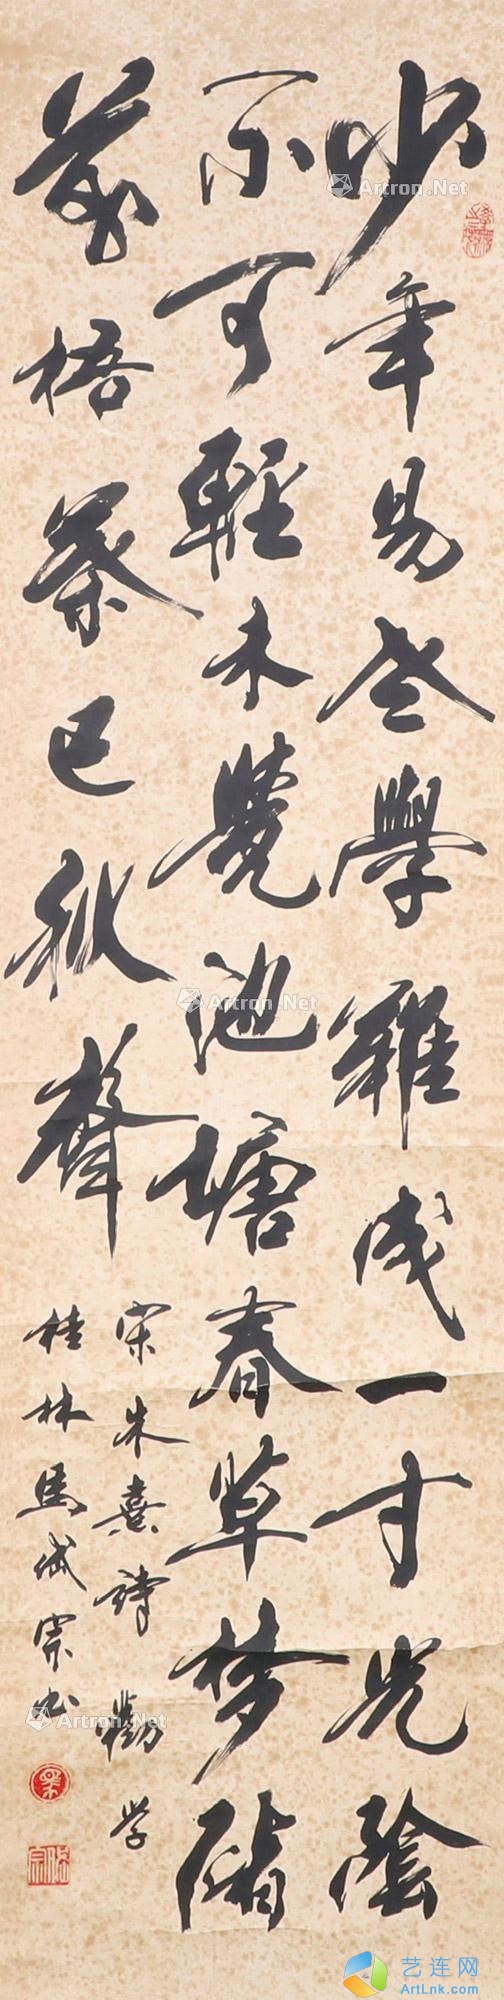 少年易老學難成一寸光陰
不可輕未覺池塘春草梦階
前梧葉已秋聲
宋朱熹詩勸学
桂林馬岱宗书
Artron.Net
Artron.Net
Artron.Net
Artron.Net
Artron.Net
Artron.Net
艺连网
ArtLnk.com